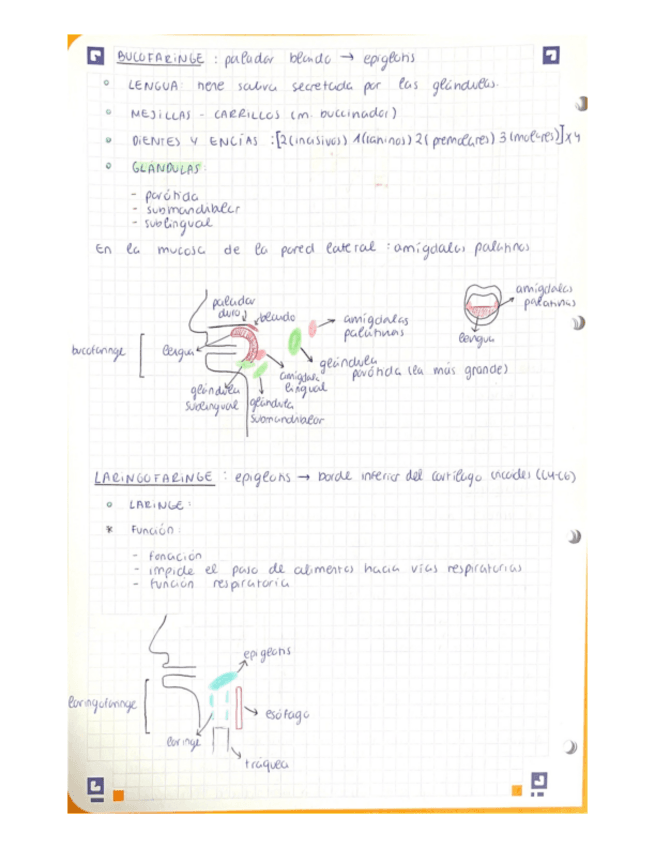 BUCOFARINGE : paladar blando → epiglotis
LENGUA: tiene saliva secretada por las glándulas.
MEJILLAS - CARRILLOS (m. buccinador)
DIENTES Y ENCÍAS : [2(incisivos) 1(caninos) 2(premolares) 3(molares)] x 4
GLÁNDULAS:
- parótida
- submandibular
- sublingual
En la mucosa de la pared lateral : amígdalas palatinas
paladar
duro
blando
amígdalas
palatinas
amígdalas
palatinas
lengua
bucofaringe
lengua
glándula
parótida (la más grande)
amígdala
lingual
glándula
sublingual
glándula
submandibular
LARINGOFARINGE : epiglotis → borde inferior del cartílago cricoides (C4-C6)
LARINGE:
* Función:
- fonación
- impide el paso de alimentos hacia vías respiratorias
- función respiratoria
epiglotis
laringofaringe
esófago
laringe
tráquea